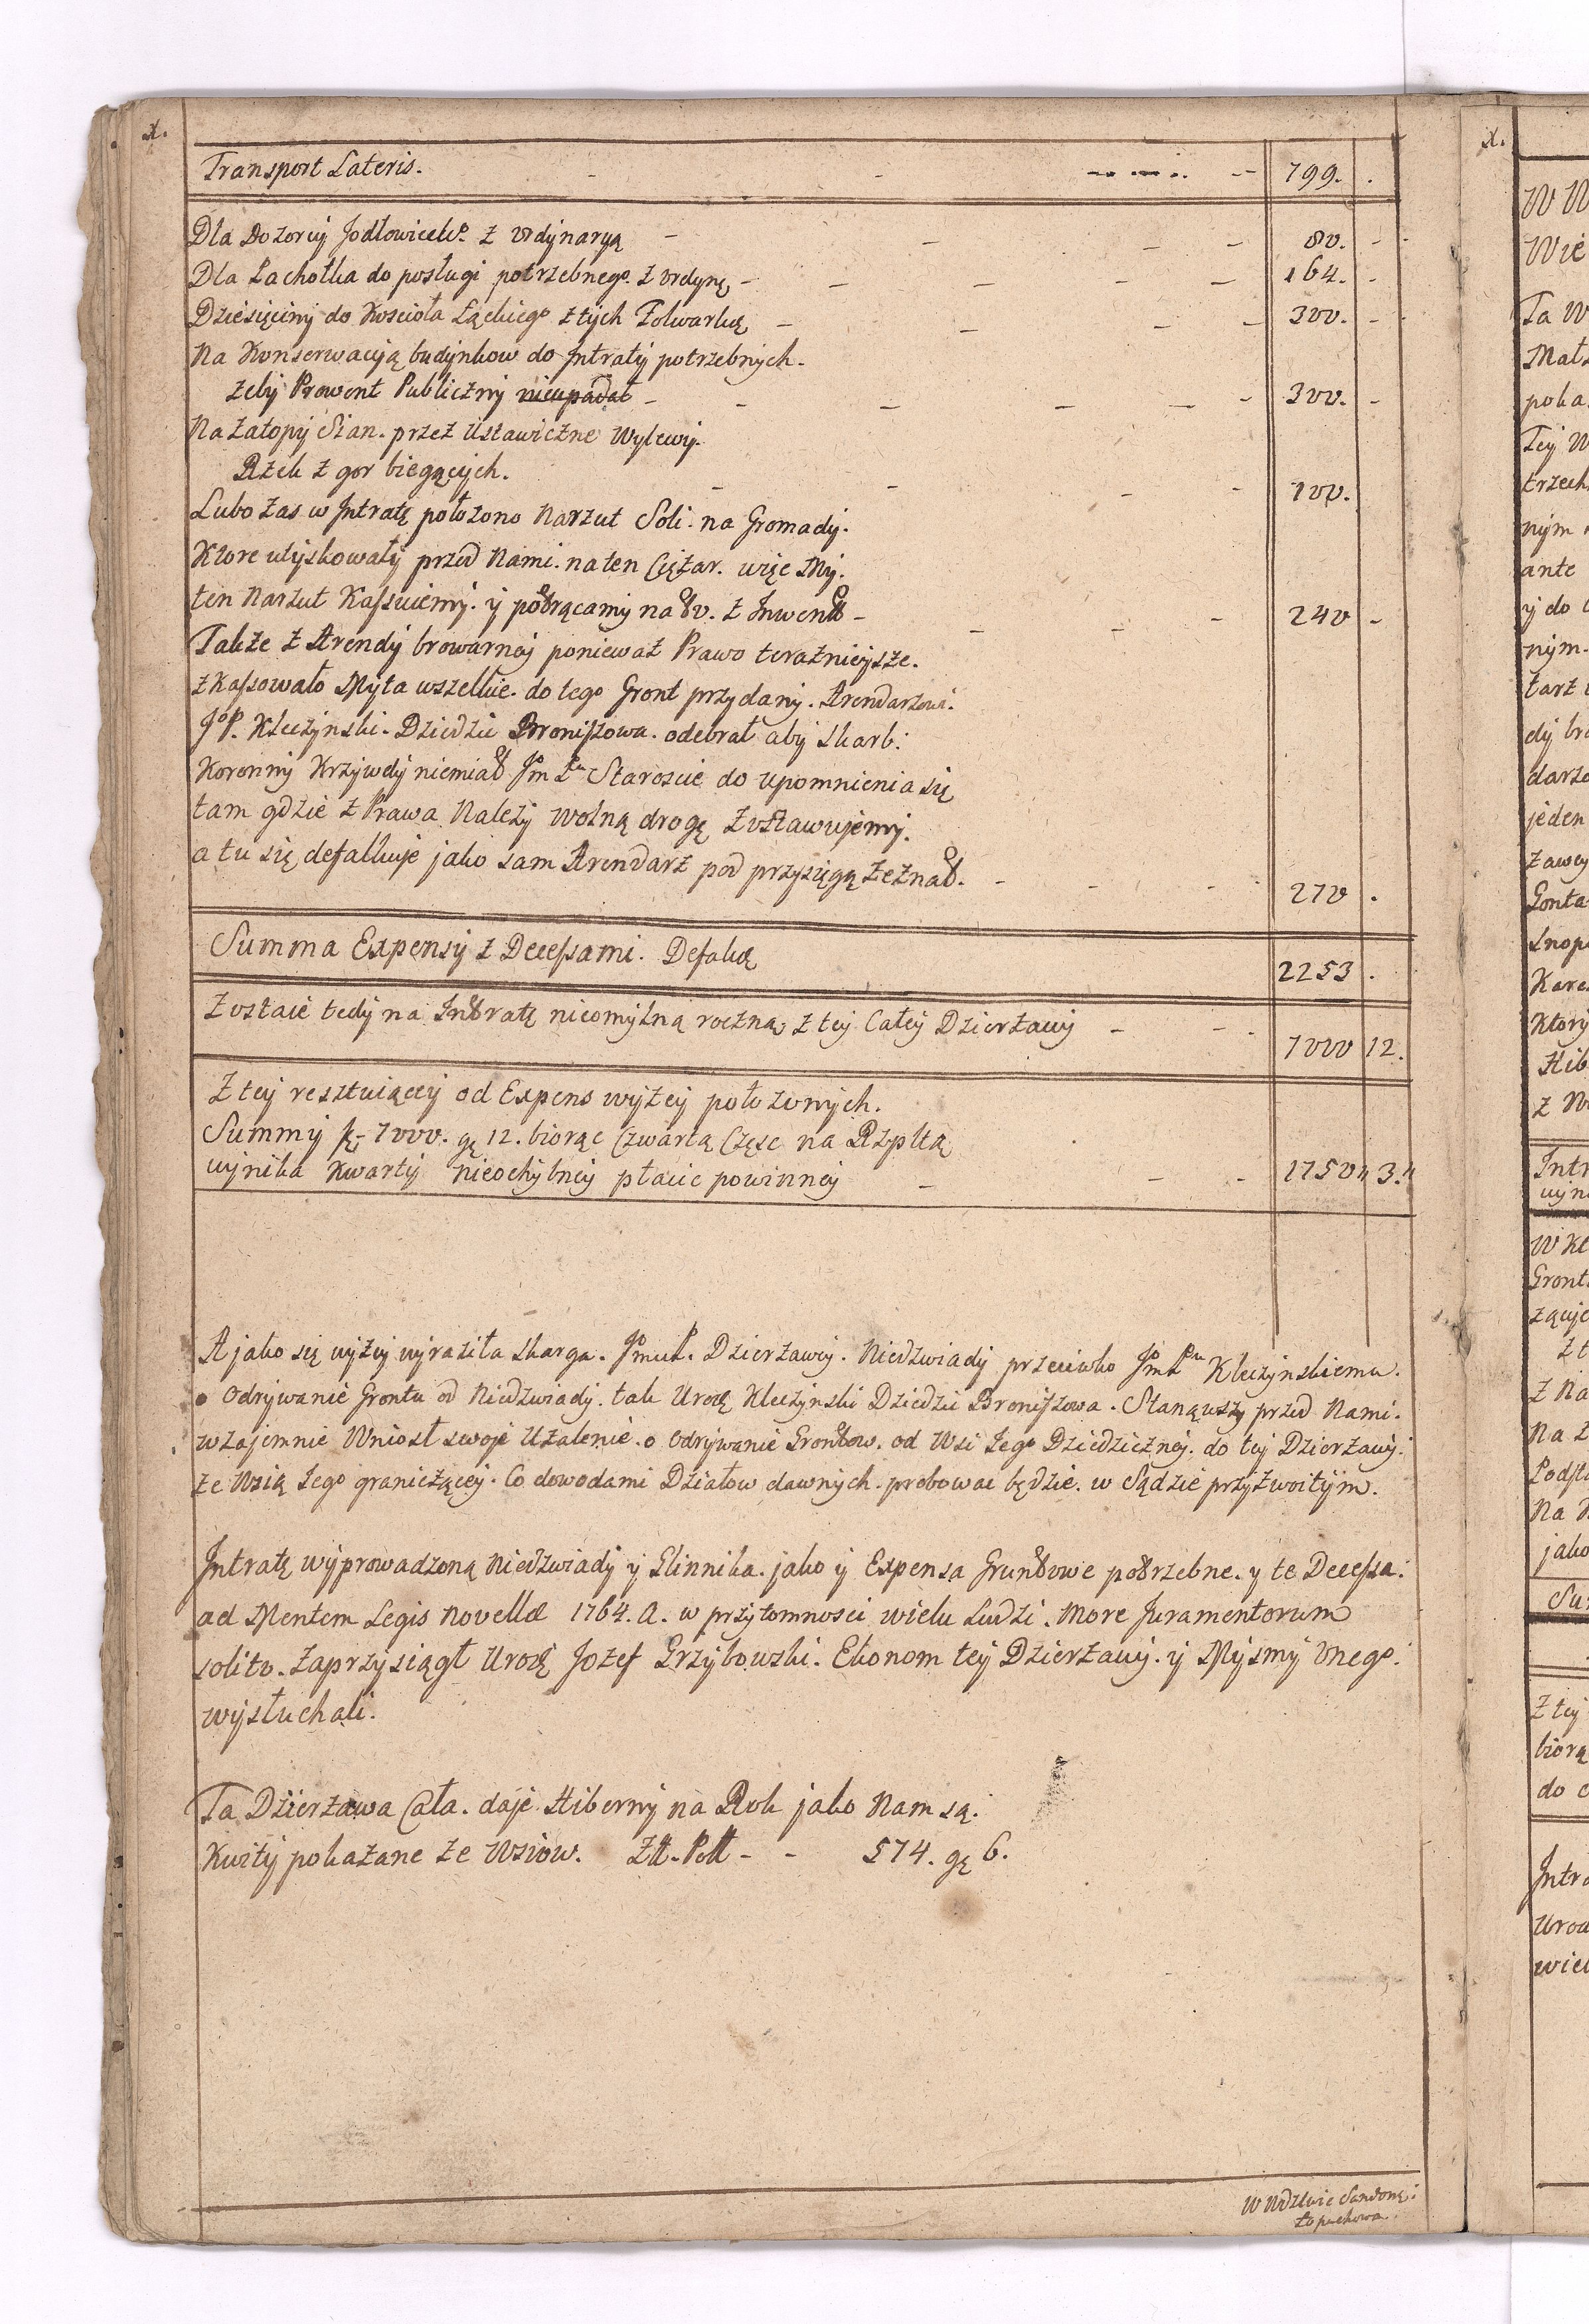 Transport Lateris. - - - - - - 799. .
Dla Dozorcy Jodłowicko. z Ordynaryą - - - - 80. -
Dla Pachołka do posługi potrzebnego. z Ordyną - - - - 164. -
Dziesięciny do Kościoła Łąckiego z tych Folwarkę - - - - 300. -
Na Konserwacyją budynkow do Intraty potrzebnych.
zeby Prowent Publiczny nieupadał - - - - - - 300. -
Na Zatopy Sian. przez Ustawiczne Wylewy.
Rzek z gor biegących. - - - - 100.
Lubo zas w Intratę położono Narzut Soli. na Gromady.
Ktore utyskowały przed Nami. na ten Ciężar. więc My.
ten Narzut Kassuiemy. y potrącamy na to. z Inwent - - - - 240 -
Także z Arendy browarney poniewaz Prawo teraznieysze.
zkassowało Myta wszelkie. do tego Gront przydany. Arendarzowi.
JoP. Kleczynski. Dziedzic Broniszowa. odebrał aby Skarb:
Koronny Krzywdy niemiał Jm Pu Staroscie do upomnienia się
tam gdzie z Prawa Nalezy wolną drogę zostawujemy.
a tu się defalkuje jako sam Arendarz pod przysięgą zeznał. - - - - 270 .
Summa Expensy z Decessami. Defalkę 2253 .
Zostaie tedy na Intratę nieomylną roczną z tey Całey Dzierzawy - - - 7000 12.
Z tey resztuiącey od Expens wyzey położonych.
Summy 7000. gę 12. biorąc Czwartą Częsc na Rzpltą
wynika Kwarty nieochybney płacic powinney - - - 1750 3.
A jako się wyzey wyraziła Skarga. Jmci P. Dzierzawcy. Niedzwiady przeciwko Jm Pu Kleczynskiemu.
o Odrywanie Grontu od Niedzwiady. tak Urodę Kleczynski Dziedzic Broniszowa. Stanąwszy przed Nami.
wzajemnie Wniosł swoje Uzalenie. o Odrywanie Grontow. od Wsi Jego Dziedziczney. do tey Dzierzawy:
ze Wsią Jego graniczącey. Co dowodami Działow dawnych. probowac będzie. w Sądzie przyzwoitym.
Intratę wyprowadzoną Niedzwiady y Glinnika. jako y Expensa Gruntowe potrzebne. y te Decessa:
ad Mentem Legis Novellæ 1764. A. w przytomnosci wielu Ludzi. More Juramentorum
solito. Zaprzysiągł Urodę Jozef Grzybowski. Ekonom tey Dzierzawy. y Mysmy Onego:
wysłuchali.
Ta Dzierzawa Cała. daje Hiberny na Rok jako Nam są:
Kwity pokazane ze Wsiow. Złł. Poll - - 574. gę 6.